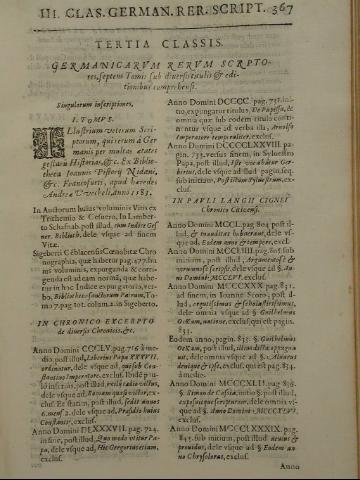 III. CLAS. GERMAN. RER. SCRIPT. 367
TERTIA CLASSIS.
GERMANICARVM RERVM SCRIPTO-
res, septem Tomis sub diversis titulis & edi-
tionibus comprehensi.
Singulorum inscriptiones,
I. TOMVS.
Illustrium veterum Scri-
ptorum, qui rerum à Ger-
manis per multas etates
gestarum Historias, &c. Ex Biblio-
theca Ioannis Pistorij Nidani,
&c. Francofurti, apud haeredes
Andreae Vvecheli, anno 1583.
In Auctorum huius voluminis Vitis ex
Trithemio & Gesnero, In Lamber-
to Schafnab. post illud,
Biblioth. dele vsque ad finem
Vitae.
Sigeberti Céblacensis Caenobitae Chro-
nographia, quae habetur pag. 477. hu-
ius voluminis, expurganda & corri-
genda est ad eam normam, quae habe-
tur in hoc Indice expurgatorio, ver-
bo, Bibliotheca sanctorum Patrum, To-
mo 7. pag. tot. colum. 2. in Sigeberto.
IN CHRONICO EXCERPTO
de diversis Chronicis, &c.
Anno Domini CCCLV. pag. 716. à me-
dio, post illud, Liberius Papa XXXVII.
ordinatur, dele vsque ad, qui sub Con-
stantino Imperatore, exclus. Ibidē pau-
lò inferiùs, post illud,
dele vsque ad, Romam quasi victor, ex-
clus. Et statim, post illud, sedit annos
6. menf. 2. dele vsque ad, Praesidis huius
Constantis, exclus.
Anno Domini DLXXXVII. pag. 724.
in fine, post illud, Quo modo vitur Pa-
pa, dele vsque ad, Hic Gregorius etiam,
exclus.
Anno Domini DCCCC. pag. 731. ini-
tio, expungatur titulus, De Papissa, &
omnia quae sub eodem titulo conti-
nentur vsque ad verba illa, Arnolfo
Imperatore interea mortuo. exclus.
Anno Domini DCCCCLXXXVIII. pag-
in. 733. versus finem, in Sylvestro
Papa, post illud, Iste vocabitur Ger-
bertus, dele vsque ad illud pag. in seq.
sub initium, Post istum Sylvestrum, ex-
clus.
IN PAVLI LANGII CIGNEI
Chronico Citicensi.
Anno Domini MCCL. pag. 804. post il-
lud, & nuditates habuerunt, dele vs-
que ad, Eodem anno & tempore, excl.
Anno Domini MCCLVIII. pag. 805. sub
initium, post illud,
dele vsque ad §. An-
no Domini MCCLXVI. exclus.
Anno Domini MCCCXXX. pag. 831.
ad finem, in Ioanne Scoto, post il-
lud,
dele omnia vsque ad §. Guilhelmus
Okam, natione, exclus. qui est in pagin.
831.
Eodem anno, pagin. 833. §. Guilhelmus
Okam, post illud,
vit, dele omnia vsque ad §. Alvarus
denique & ipse, exclus. qui est pag. 834.
à medio.
Anno Domini MCCCXLII. pag. 836.
§. Simon de Cassia, initio §. post illud,
dele omnia vs-
que ad §. Anno Domini MCCCXLVI.
exclus.
Anno Domini MCCCLXXXIX. pag.
845. sub initium, post illud,
dele vsque ad § Eodem an-
no Chrysoloras, exclus.
Anno